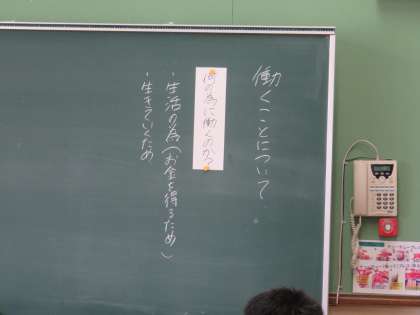 働くことについて。
何の為に働くのか?
・生活の為(お金を得るため)
・生きていくため